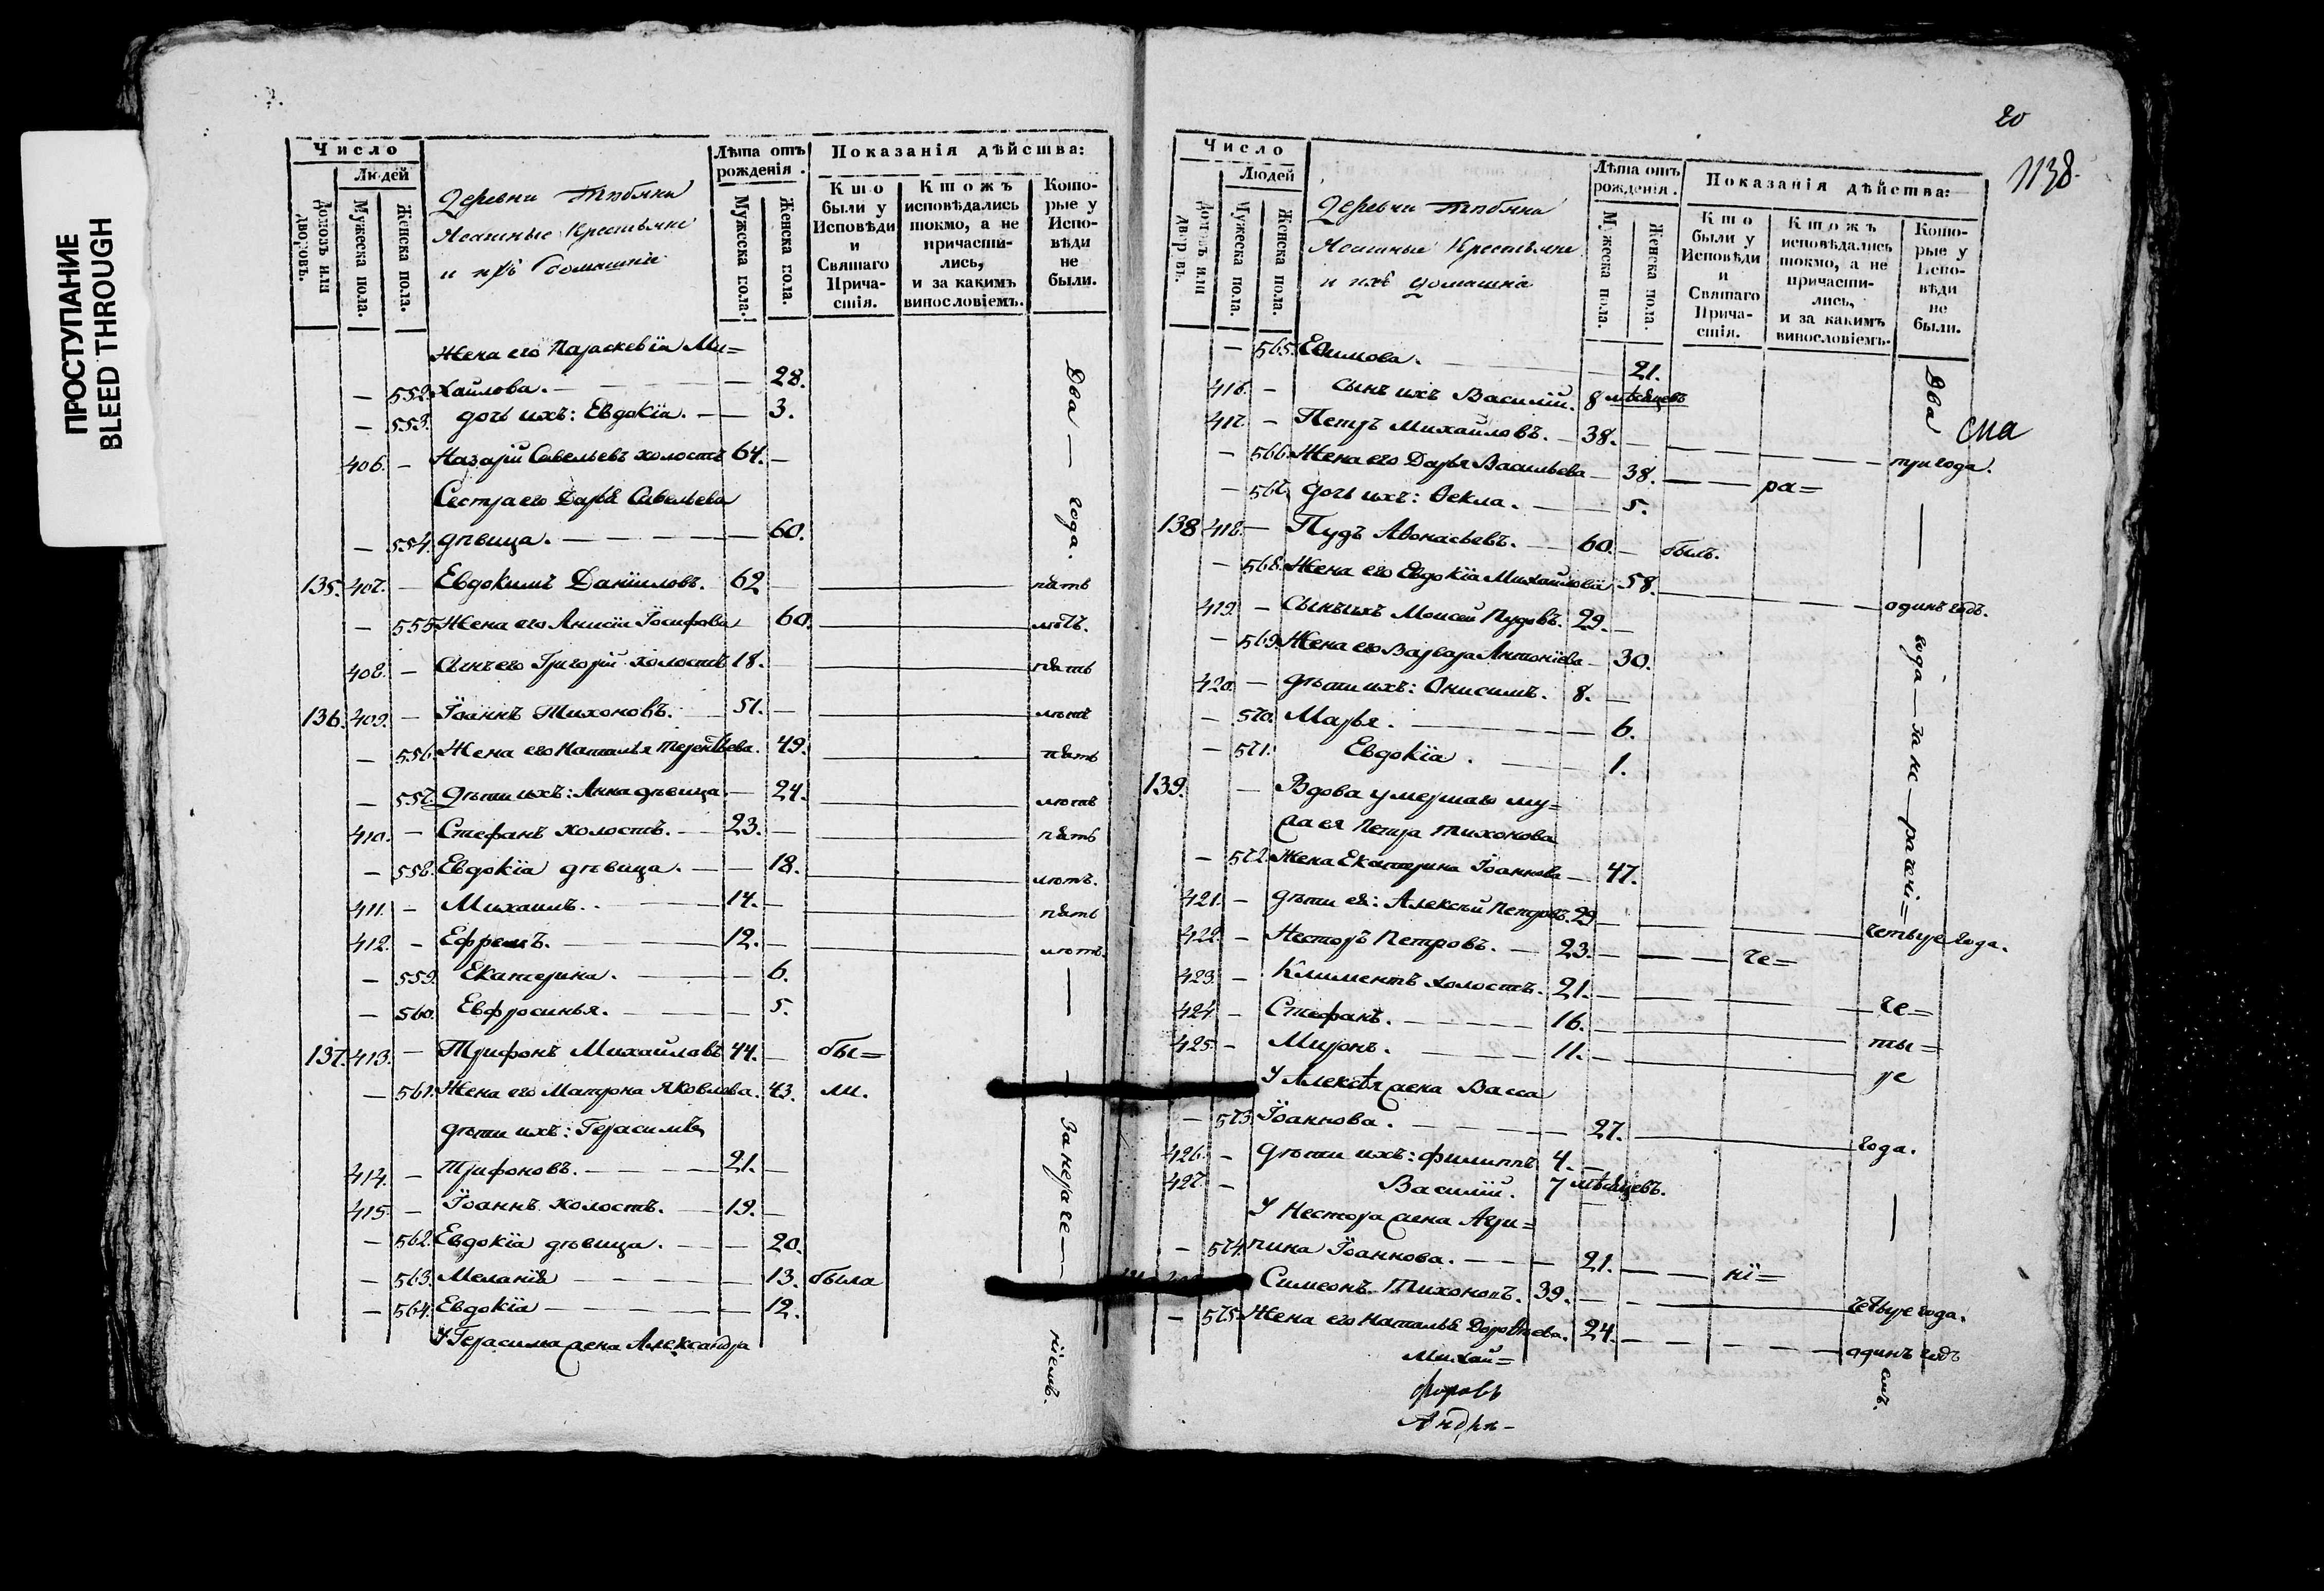 ПРОСТУПАНИЕ
BLEED THROUGH
Число
Людей
Домовъ или дворовъ.
Мужеска пола.
Женска пола.
Деревни
Ясашные Крестьяне
и ихъ домашніе
Лѣта отъ рожденія.
Мужеска пола.
Женска пола.
Показанія дѣйства:
Кто были у Исповѣди и Святаго Причастія.
Ктожъ исповѣдались токмо, а не причастились, и за какимъ винословіемъ.
Которые у Исповѣди не были.
Жена его Параскевіа Ми=
— 552. хайлова. — 28.
— 553. дочь ихъ: Евдокіа. — 3.
406. — Назарій Савельевъ холостъ 64. —
Сестра его Дарья Савельева
— 554. дѣвица. — 60.
Два — года.
135. 407. — Евдокимъ Даніиловъ. 62 — пять
— 555. Жена его Анисіа Іосифова 60. лѣтъ.
408. — Сынъ его Григорій холостъ 18. — пять
136. 409. — Іоаннъ Тихоновъ. 51. — лѣтъ
— 556. Жена его Наталья Терентьева. 49. пять
— 557. Дѣти ихъ: Анна дѣвица. — 24. лѣтъ
410. — Стефанъ холостъ. — 23. — пять
— 558. Евдокіа дѣвица. — 18. лѣтъ.
411. — Михаилъ. 14. — пять
412. — Ефремъ. 12. — лѣтъ.
— 559. Екатерина. — 6.
— 560. Евфросинья. 5.
137. 413. — Трифонъ Михайловъ 44. — бы=
— 561. Жена его Матрона Яковлева. 43. ли.
дѣти ихъ: Герасимъ
414. — Трифоновъ. — 21. —
415. — Іоаннъ холостъ. — 19. —
— 562. Евдокіа дѣвица. — 20.
— 563. Меланія — 13. была
— 564. Евдокіа — 12.
У Герасима жена Александра
За нераче — ніемъ.
20
1138.
Число
Людей
Домовъ или дворовъ.
Мужеска пола.
Женска пола.
Деревни
Ясашные Крестьяне
и ихъ домашніе
Лѣта отъ рожденія.
Мужеска пола.
Женска пола.
Показанія дѣйства:
Кто были у Исповѣди и Святаго Причастія.
Ктожъ исповѣдались токмо, а не причастились, и за какимъ винословіемъ.
Которые у Исповѣди не были.
— 565. Еѳимова. — 21.
416. — Сынъ ихъ Василій. 8 мѣсяцевъ
Два
417. — Петръ Михайловъ. — 38. — три года.
— 566. Жена его Дарья Васильева — 38. — ра=
— 567. Дочь ихъ: Ѳекла. — 5.
138 418. — Пудъ Аѳонасьевъ. — 60. — былъ.
— 568. Жена его Евдокіа Михайлова 58. — одинъ годъ.
419. — Сынъ ихъ Моисей Пудовъ. 29. —
— 569. Жена его Варвара Антоніева — 30.
420. — Дѣти ихъ: Онисимъ. 8. —
— 570. Марья. — 6.
— 571. Евдокіа. — 1.
года — за не — рачені=
139. — Вдова умершаго му=
жа ея Петра Тихонова
— 572. Жена Екатерина Іоаннова — 47.
421. — Дѣти ея: Алексѣй Петровъ. 29. — четыре года.
422. — Несторъ Петровъ. — 23. — че=
423. — Климентъ холостъ. 21. — че=
424. — Стефанъ. — 16. — ты=
425. — Миронъ. — 11. — ре
У Алексѣя жена Васса
— 573. Іоаннова. — 27. — года.
426. — Дѣти ихъ: Филиппъ 4. —
427. — Василій. 7 мѣсяцевъ.
У Нестора жена Агри=
— 574. пина Іоаннова. — 21. — ні=
Симеонъ Тихоновъ. 39. — четыре года.
— 575. Жена его Наталья Дороѳеева. 24. — одинъ годъ
емъ.
Михай=